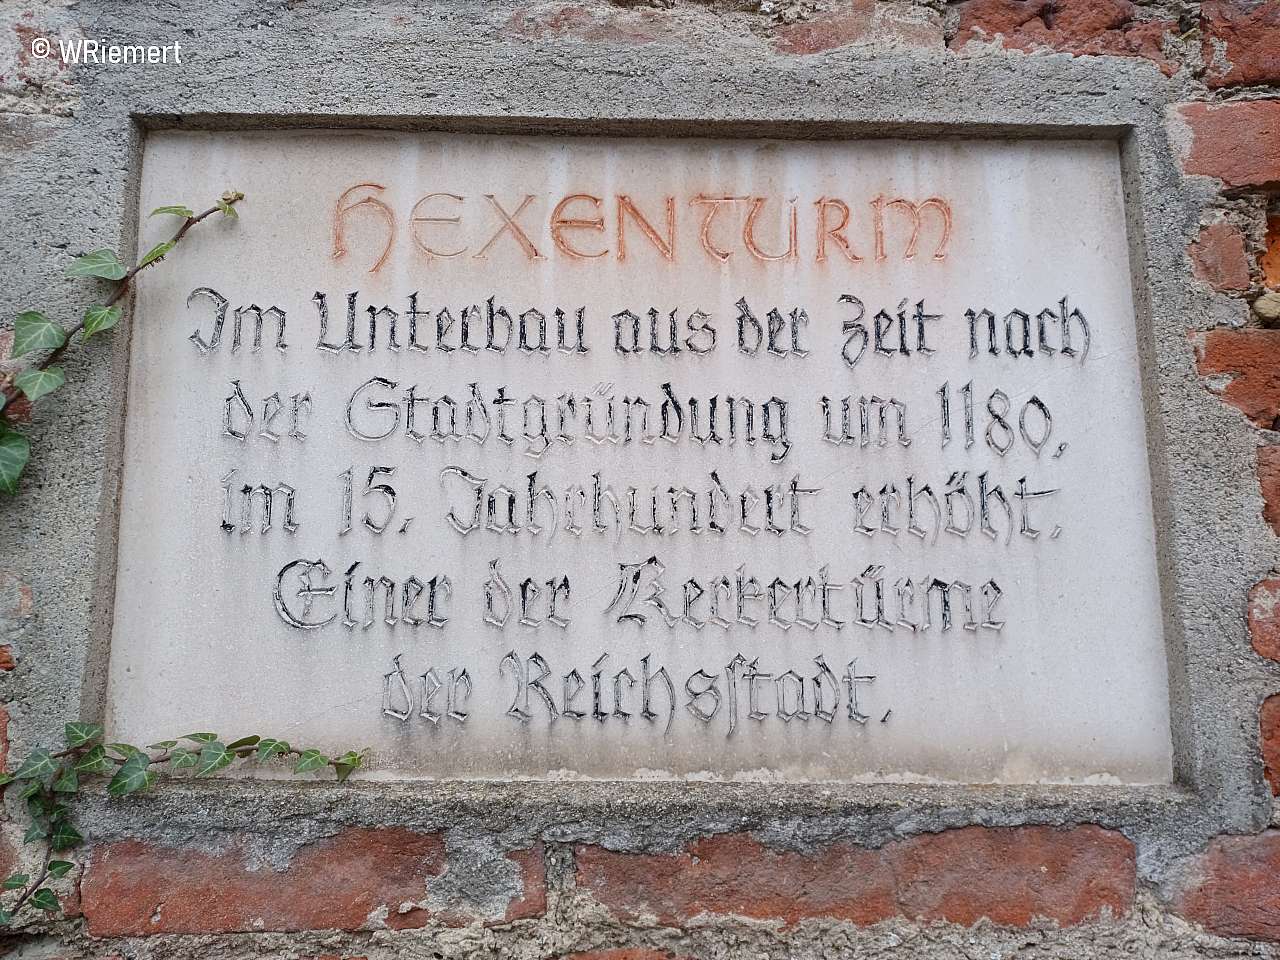 © WRiemert
HEXENTURM
Im Unterbau aus der Zeit nach
der Stadtgründung um 1180,
im 15. Jahrhundert erhöht.
Einer der Kerkertürme
der Reichsſtadt.